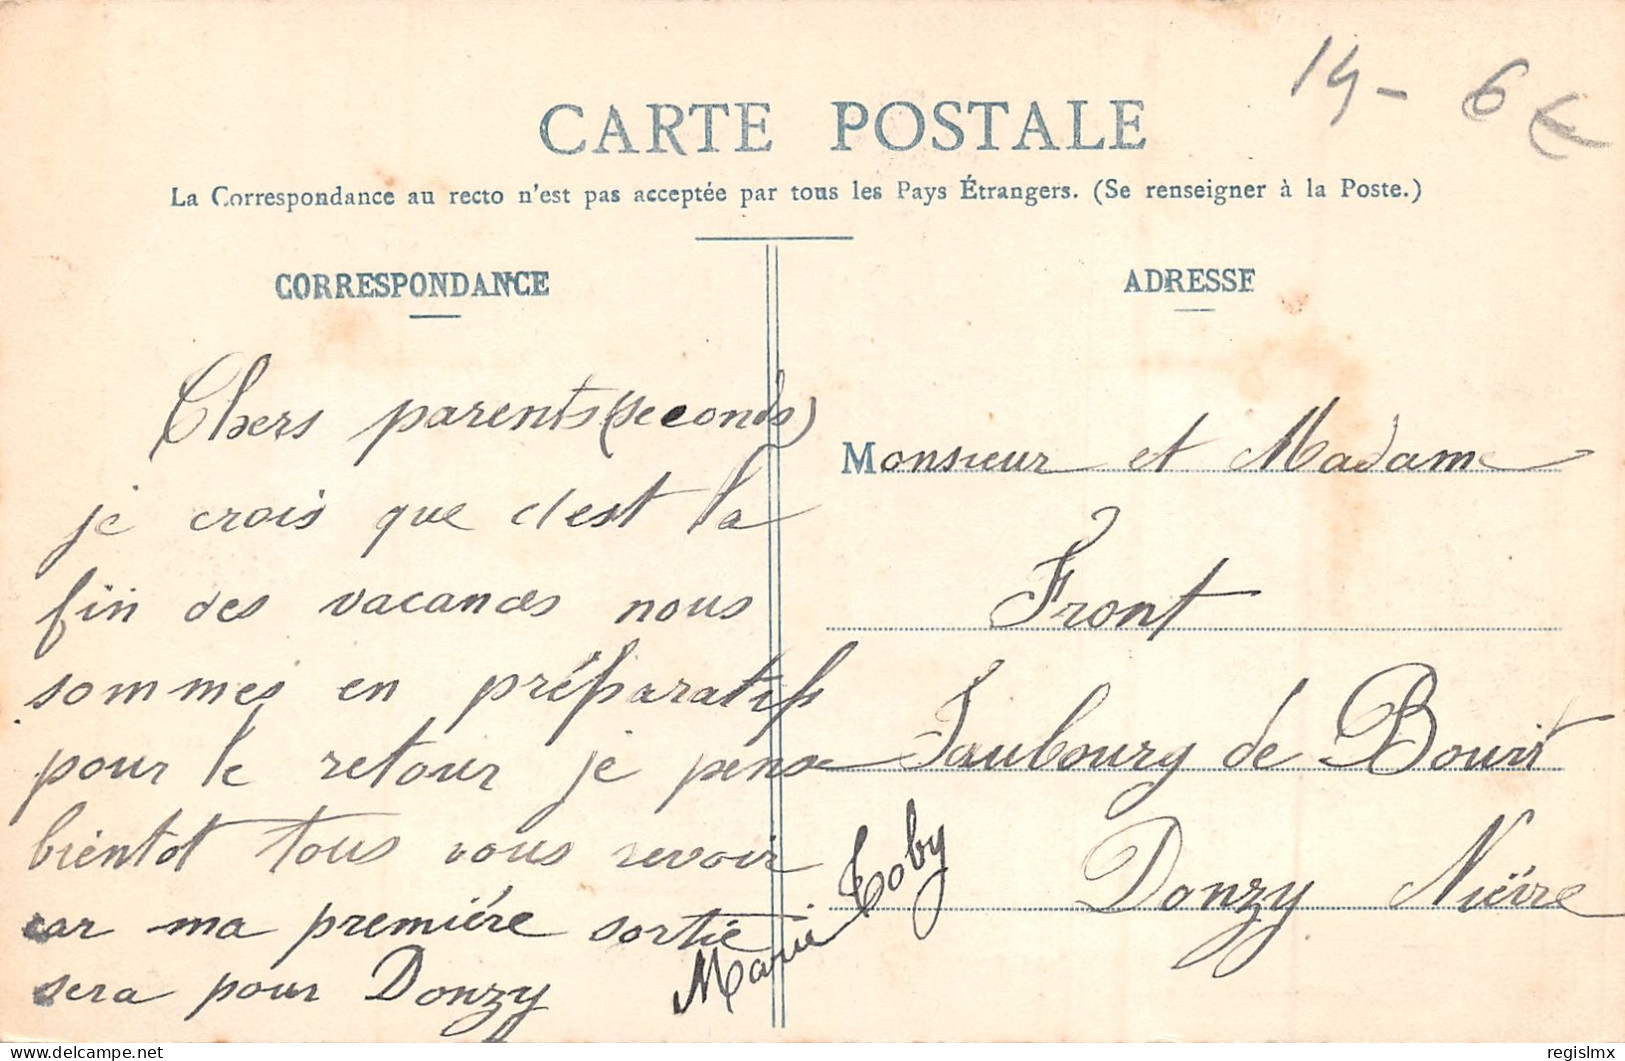 14 - 6 €
CARTE POSTALE
La Correspondance au recto n'est pas acceptée par tous les Pays Étrangers. (Se renseigner à la Poste.)
CORRESPONDANCE
Chers parents (seconds)
je crois que c'est la
fin des vacances nous
sommes en préparatifs
pour le retour je pense
bientot tous vous revoir
car ma premiére sortie
sera pour Donzy
Marie Toby
ADRESSE
Monsieur et Madame
Front
Faubourg de Bourit
Donzy Nièvre
delcampe.net
regislmx